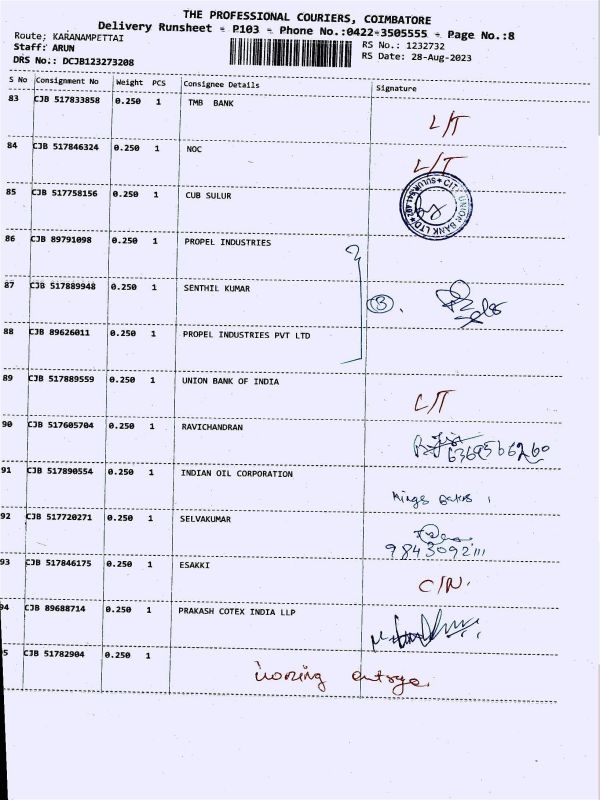 THE PROFESSIONAL COURIERS, COIMBATORE
Delivery Runsheet - P103 - Phone No.:0422-3505555 - Page No.:8
Route; KARANAMPETTAI
RS No.: 1232732
Staff: ARUN
RS Date: 28-Aug-2023
DRS No.: DCJB123273208
S No Consignment No Weight PCS Consignee Details Signature
83 CJB 517833858 0.250 1 TMB BANK
L/T
84 CJB 517846324 0.250 1 NOC
L/T
85 CJB 517758156 0.250 1 CUB SULUR
CITY UNION BANK LTD
86 CJB 89791098 0.250 1 PROPEL INDUSTRIES
87 CJB 517889948 0.250 1 SENTHIL KUMAR
3
88 CJB 89626011 0.250 1 PROPEL INDUSTRIES PVT LTD
89 CJB 517889559 0.250 1 UNION BANK OF INDIA
90 CJB 517605704 0.250 1 RAVICHANDRAN
91 CJB 517890554 0.250 1 INDIAN OIL CORPORATION
92 CJB 517720271 0.250 1 SELVAKUMAR
93 CJB 517846175 0.250 1 ESAKKI
C/N.
94 CJB 89688714 0.250 1 PRAKASH COTEX INDIA LLP
5 CJB 51782904 0.250 1